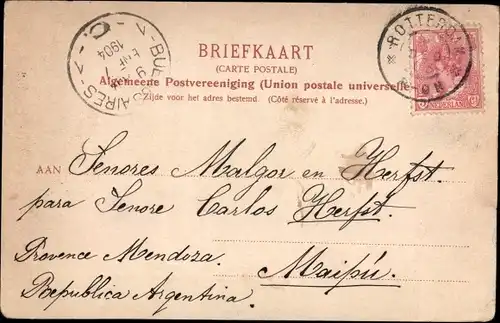 BRIEFKAART
(CARTE POSTALE)
Algemeene Postvereeniging (Union postale universelle
Zijde voor het adres bestemd. (Côté réservé à l'adresse.)
BUENOS AIRES
1904
ROTTERDAM
NEDERLAND
AAN Senores Malgor en Herfst.
para Senore Carlos Herfst.
Provence Mendoza.
Maipú.
Republica Argentina.